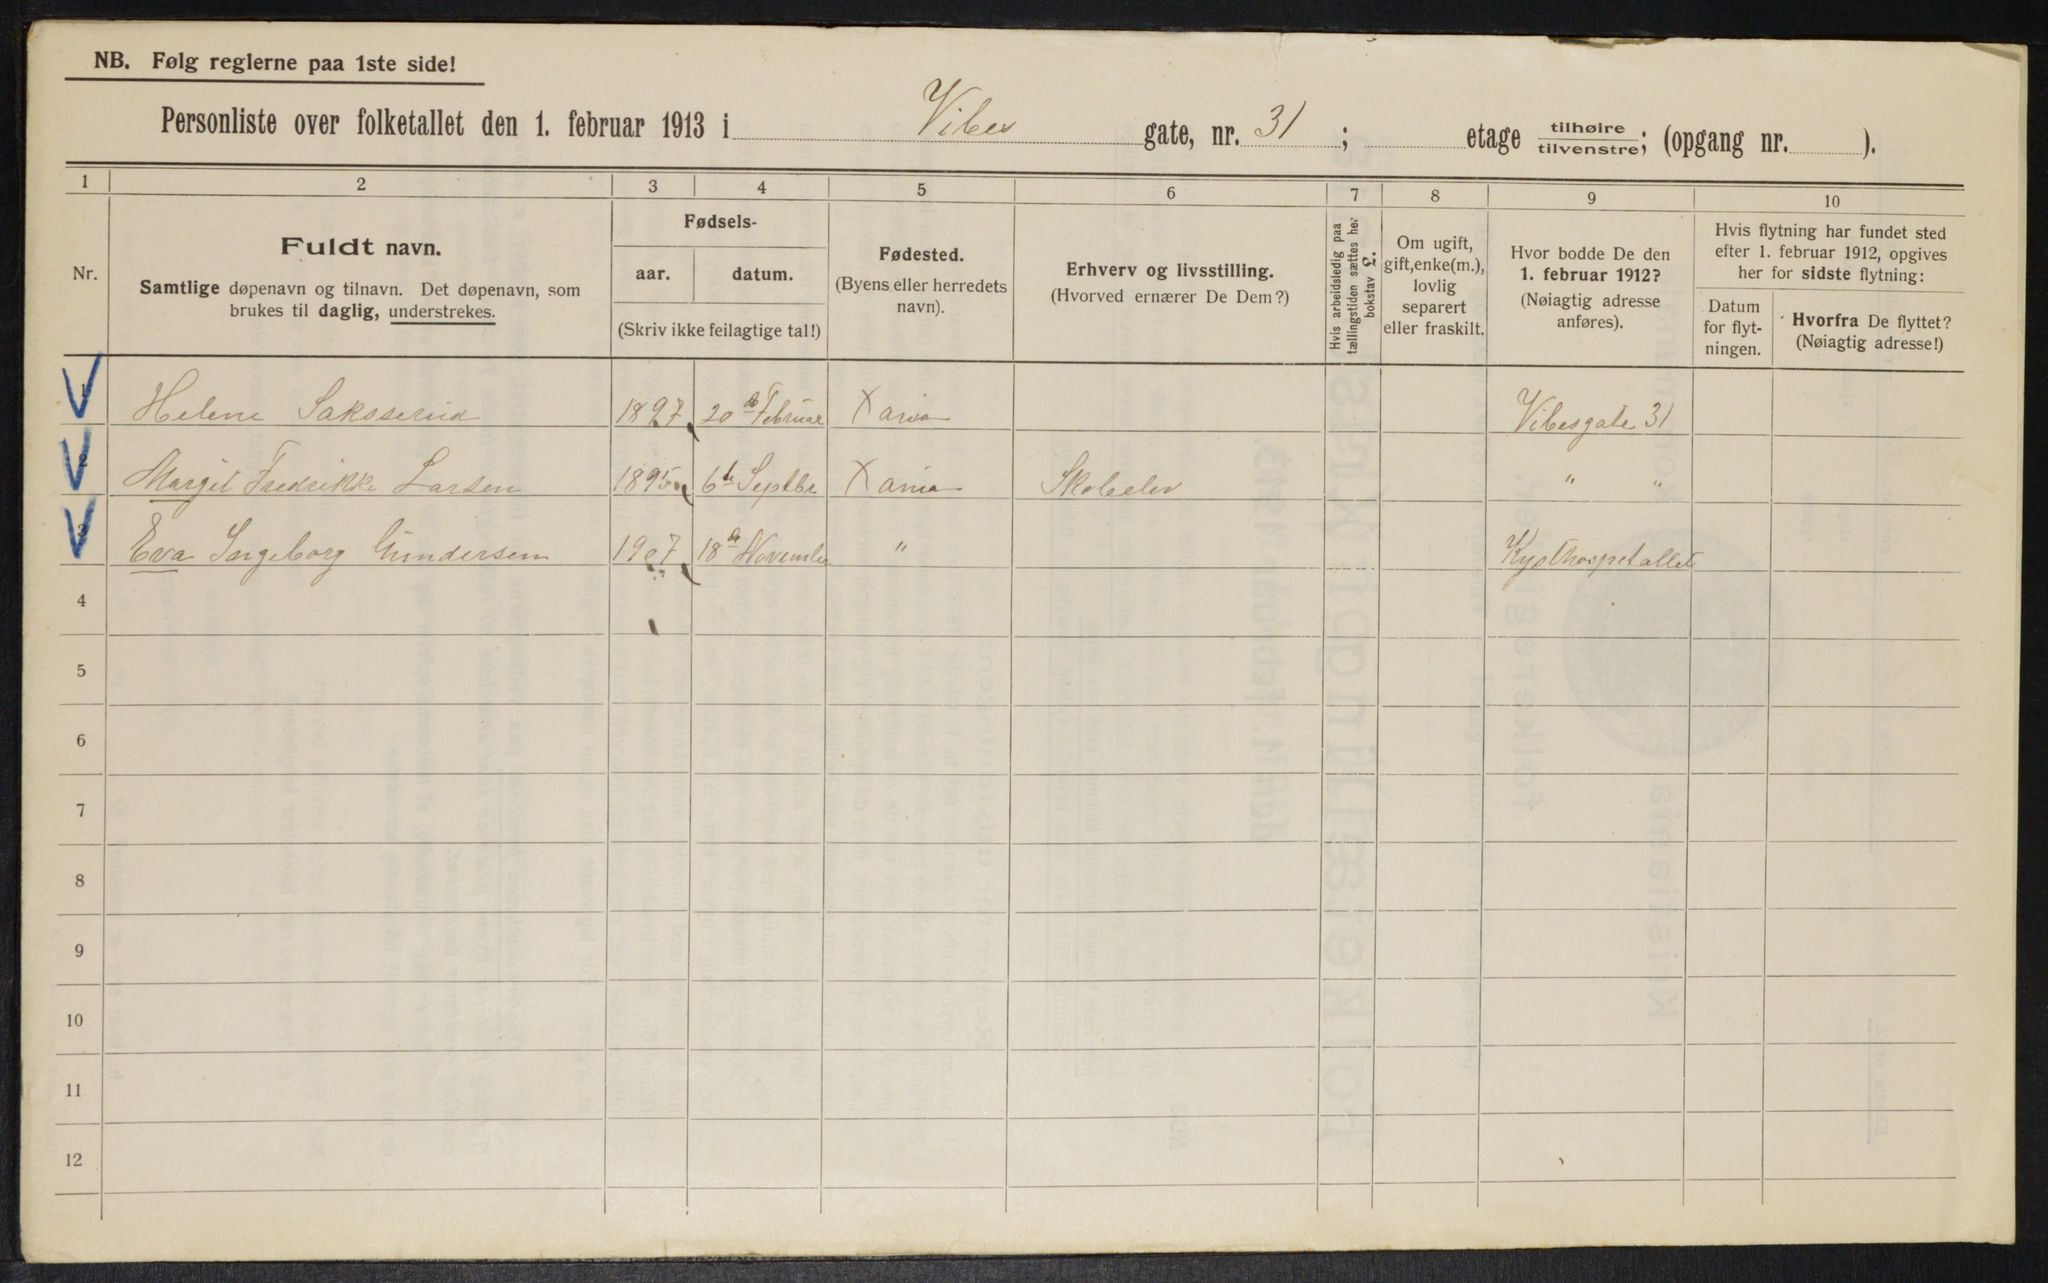 NB. Følg reglerne paa 1ste side!
Personliste over folketallet den 1. februar 1913 i Vibes gate, nr. 31; etage tilhøire tilvenstre; (opgang nr. ).
1 2 3 4 5 6 7 8 9 10
Nr.
Fuldt navn.
Samtlige døpenavn og tilnavn. Det døpenavn, som
brukes til daglig, understrekes.
Fødsels-
aar. datum.
(Skriv ikke feilagtige tal!)
Fødested.
(Byens eller herredets
navn).
Erhverv og livsstilling.
(Hvorved ernærer De Dem?)
Hvis arbeidsledig paa
tællingstiden sættes her
bokstav L.
Om ugift,
gift, enke(m.),
lovlig
separert
eller fraskilt.
Hvor bodde De den
1. februar 1912?
(Nøiagtig adresse
anføres).
Hvis flytning har fundet sted
efter 1. februar 1912, opgives
her for sidste flytning:
Datum
for flyt-
ningen.
Hvorfra De flyttet?
(Nøiagtig adresse!)
1 Helene Saksserud 1897 20de Februar Xania Vibesgate 31
2 Margit Fredrikke Larsen 1895 6te Septbr Xania Skoleelev " "
3 Eva Ingeborg Gundersen 1907 18de November " Kysthospetallet
4
5
6
7
8
9
10
11
12